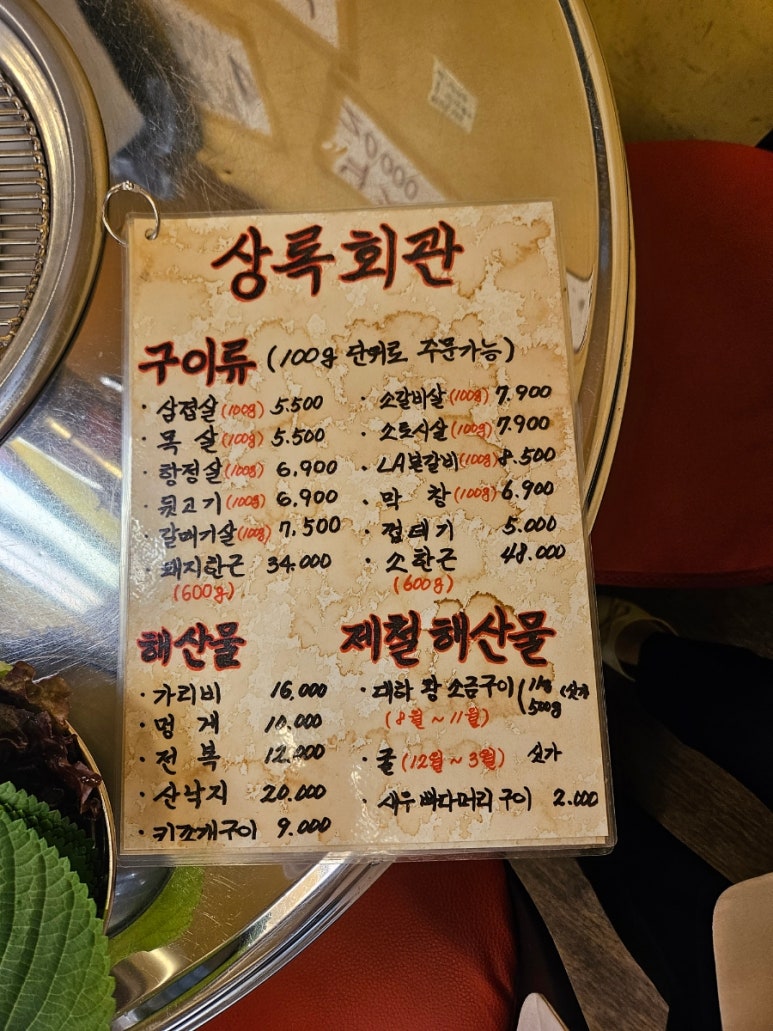 20,000
상록회관
구이류 (100g 단위로 주문가능)
· 삼겹살 (100g) 5.500
· 목 살 (100g) 5.500
· 항정살 (100g) 6.900
· 뒷고기 (100g) 6.900
· 갈매기살 (100g) 7.500
· 돼지한근 34.000
(600g)
· 소갈비살 (100g) 7.900
· 소토시살 (100g) 7.900
· LA본갈비 (100g) 8.500
· 막 창 (100g) 6.900
· 껍데기 5.000
· 소한근 48.000
(600g)
해산물
· 가리비 16.000
· 멍 게 10.000
· 전 복 12.000
· 산낙지 20.000
· 키조개구이 9.000
제철 해산물
· 대하 왕 소금구이 (1kg 500g) 싯가
(8월 ~ 11월)
· 굴 (12월 ~ 3월) 싯가
· 새우 빠다머리구이 2.000